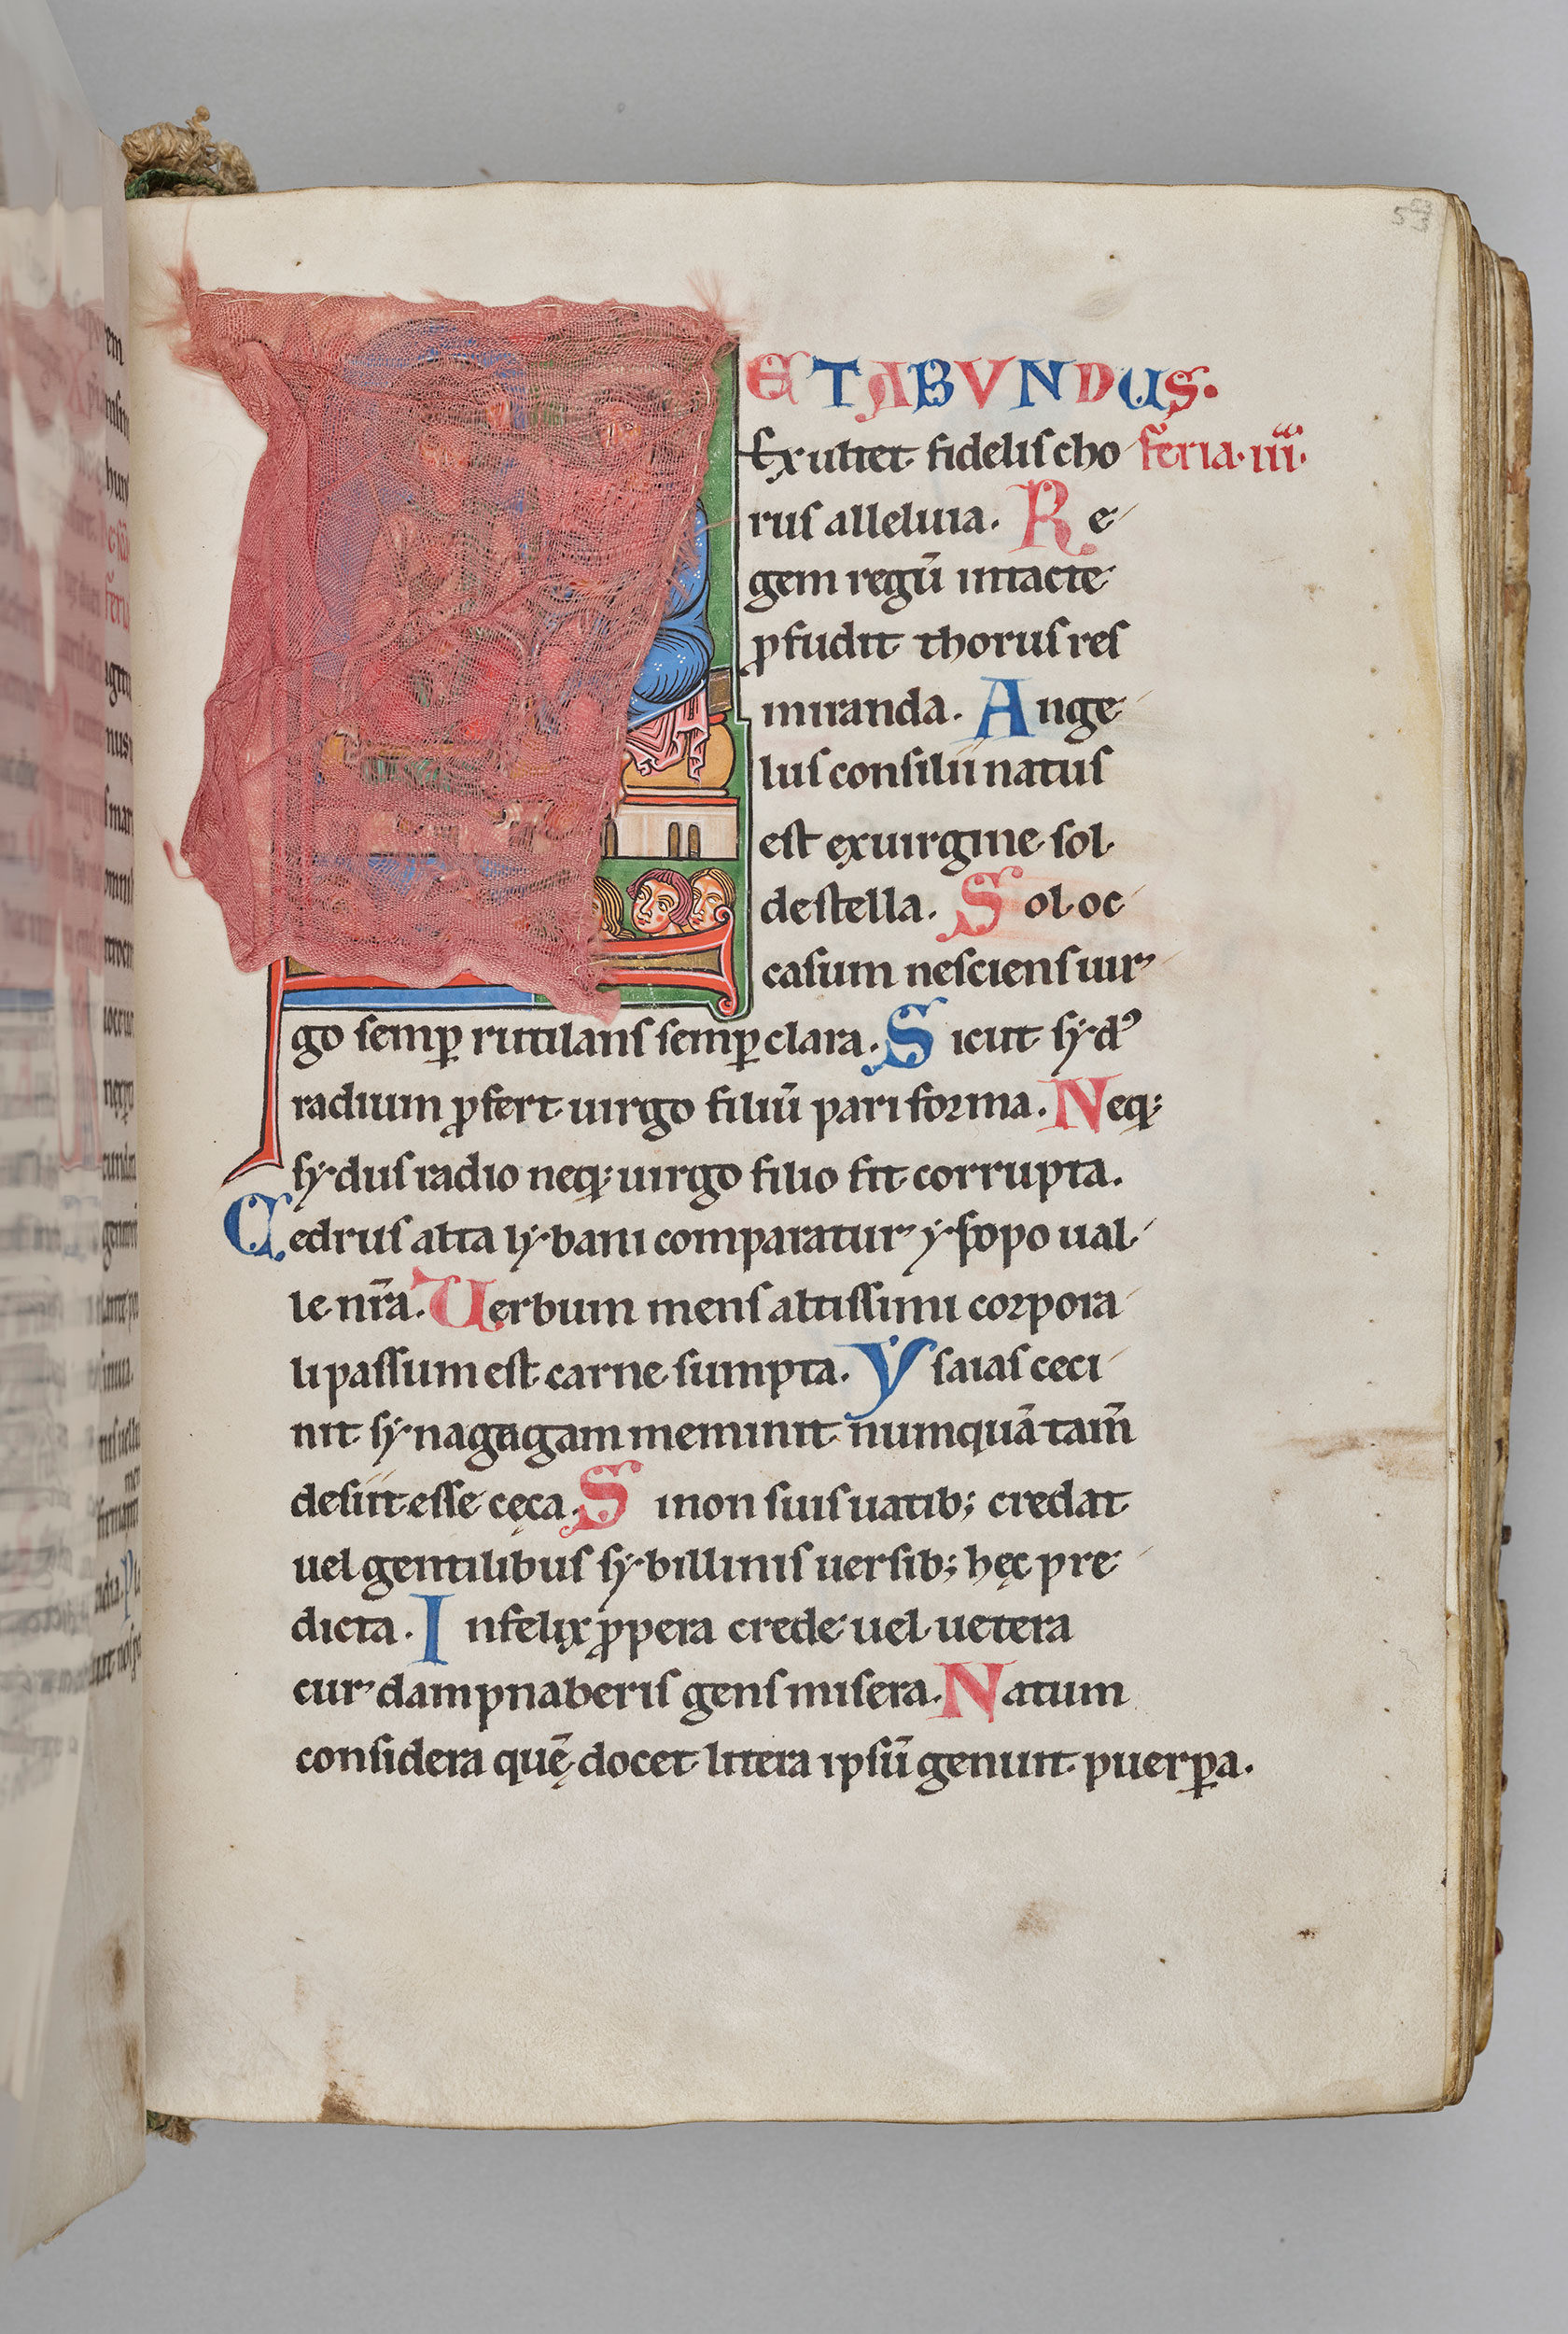 ETABVNDUS.
Exultet fidelis cho feria·iii·
rus alleluia. Re
gem regū intacte
ꝓfudit thorus res
miranda. Ange
lus consilii natus
est ex uirgine sol
de stella. Sol oc
casum nesciens uir
go semꝑ rutilans semꝑ clara. Sicut sẏdꝰ
radium ꝓfert uirgo filiū pari forma. Neqꝫ
sẏdus radio neqꝫ uirgo filio fit corrupta.
Cedrus alta lẏbani comparatur ẏsopo ual
le nr̄a. Uerbum mens altissimi corpora
li passum est carne sumpta. Ysaias ceci
nit sẏnagagam meminit numquā tam̄
desiit esse cęca. Si non suis uatibꝫ credat
uel gentilibus sẏbillinis uersibꝫ hęc pre
dicta. Infelix ꝓpera crede uel uetera
cur dampnaberis gens misera. Natum
considera quę̄ docet littera ipsū genuit puerꝑa.